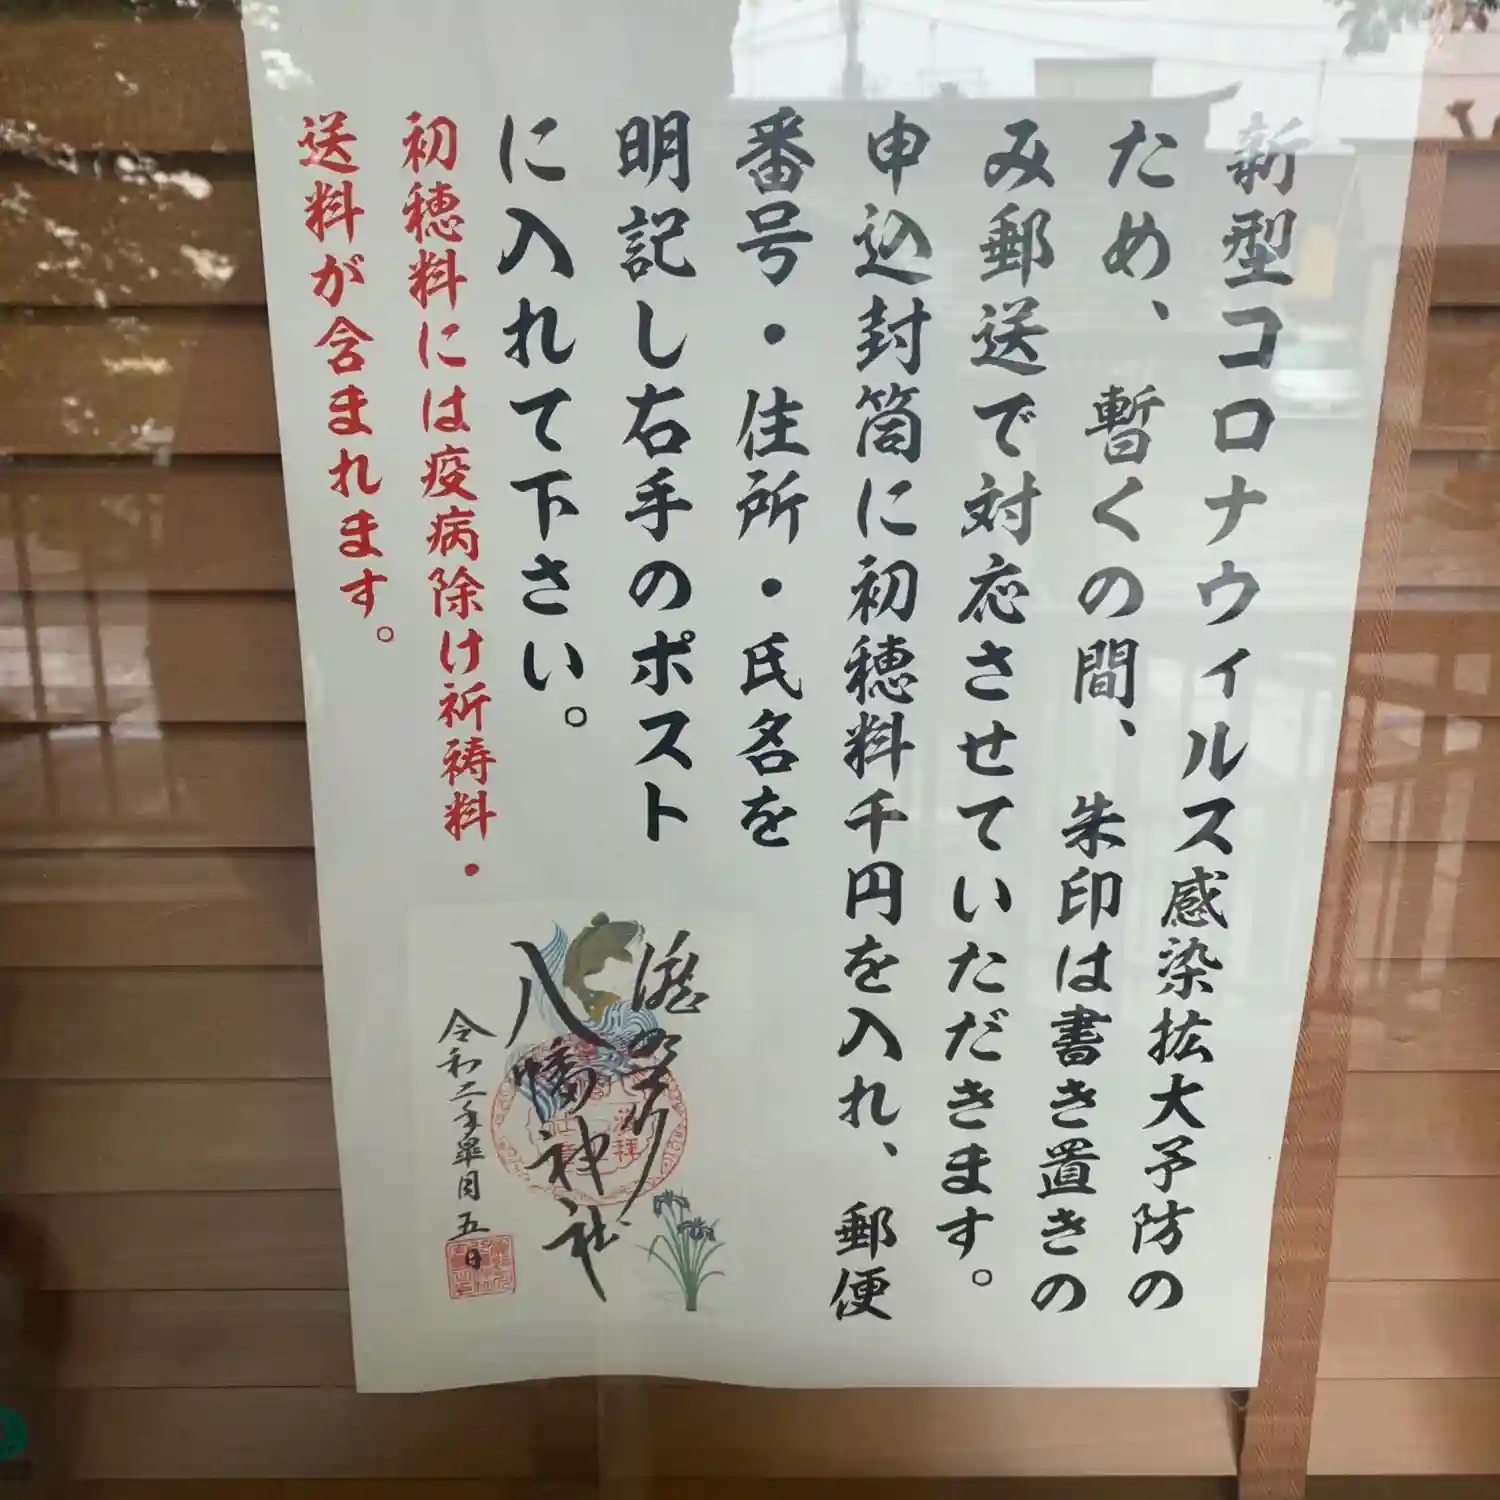 新型コロナウィルス感染拡大予防の
ため、暫くの間、朱印は書き置きの
み郵送で対応させていただきます。
申込封筒に初穂料千円を入れ、郵便
番号・住所・氏名を
明記し右手のポスト
に入れて下さい。
初穂料には疫病除け祈祷料・
送料が含まれます。
八幡神社
令和二年皐月五日